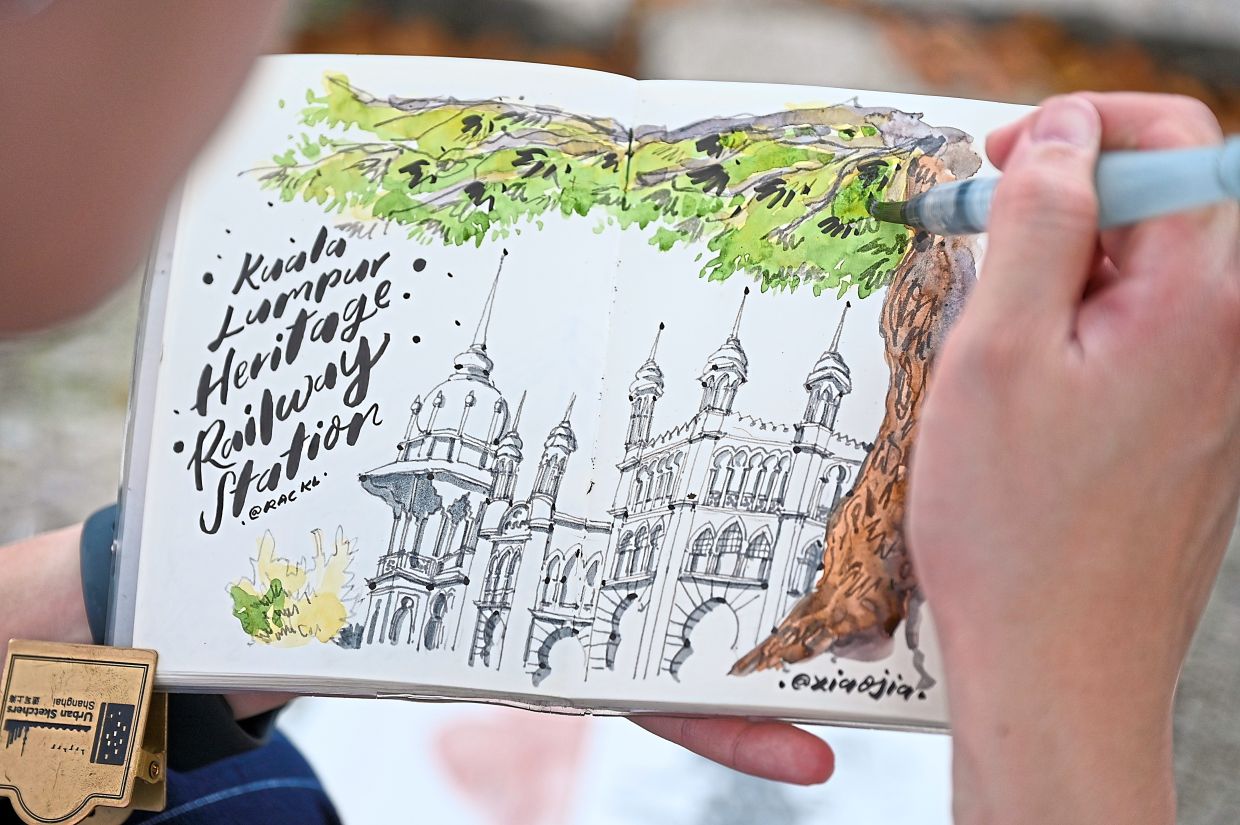 Kuala
Lumpur
Heritage
Railway
Station
@RACKL
@xiaojia
Urban Sketchers
Shanghai
速写上海